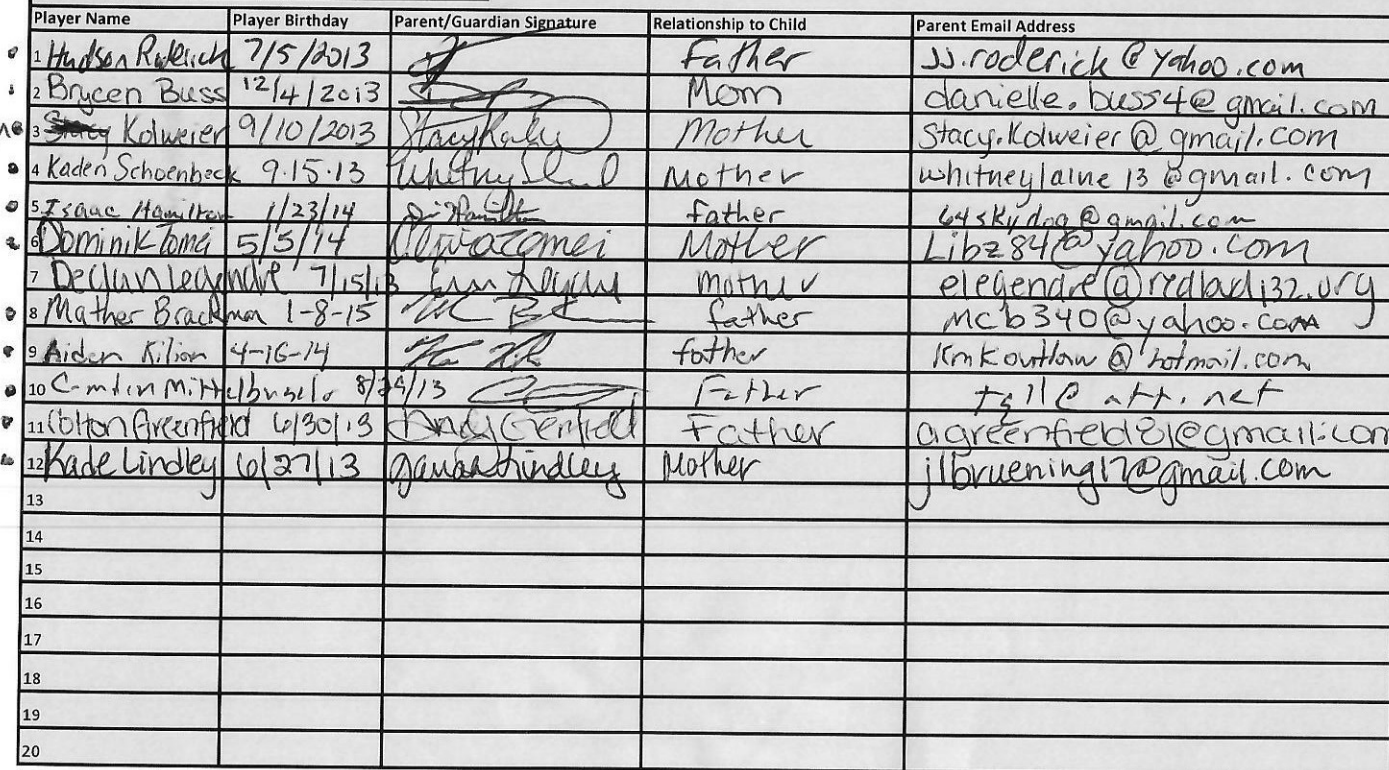 Player Name Player Birthday Parent/Guardian Signature Relationship to Child Parent Email Address
1 Hudson Roderick 7/5/2013 Father JJ.roderick@yahoo.com
2 Brycen Buss 12/4/2013 Mom danielle.buss4@gmail.com
3 Kolweier 9/10/2013 Stacy Mother Stacy.Kolweier@gmail.com
4 Kaden Schoenbeck 9.15.13 Whitney Mother whitneylaine13@gmail.com
5 Isaac Hamilton 1/23/14 Hamilton father 64skydog@gmail.com
6 Dominik Tomei 5/5/14 Olivia Tomei Mother Libz84@yahoo.com
7 Declan Legendre 7/15/13 Erin Legendre mother elegendre@redbud132.org
8 Mather Brackman 1-8-15 father mcb340@yahoo.com
9 Aiden Kilian 4-16-14 father kmkoutlaw@hotmail.com
10 Camden Mittelbuscher 8/29/13 Father tgll@att.net
11 Colton Greenfield 6/30/13 Andy Greenfield Father agreenfield81@gmail.com
12 Kade Lindley 6/27/13 Lindley Mother jlbruening17@gmail.com
13
14
15
16
17
18
19
20